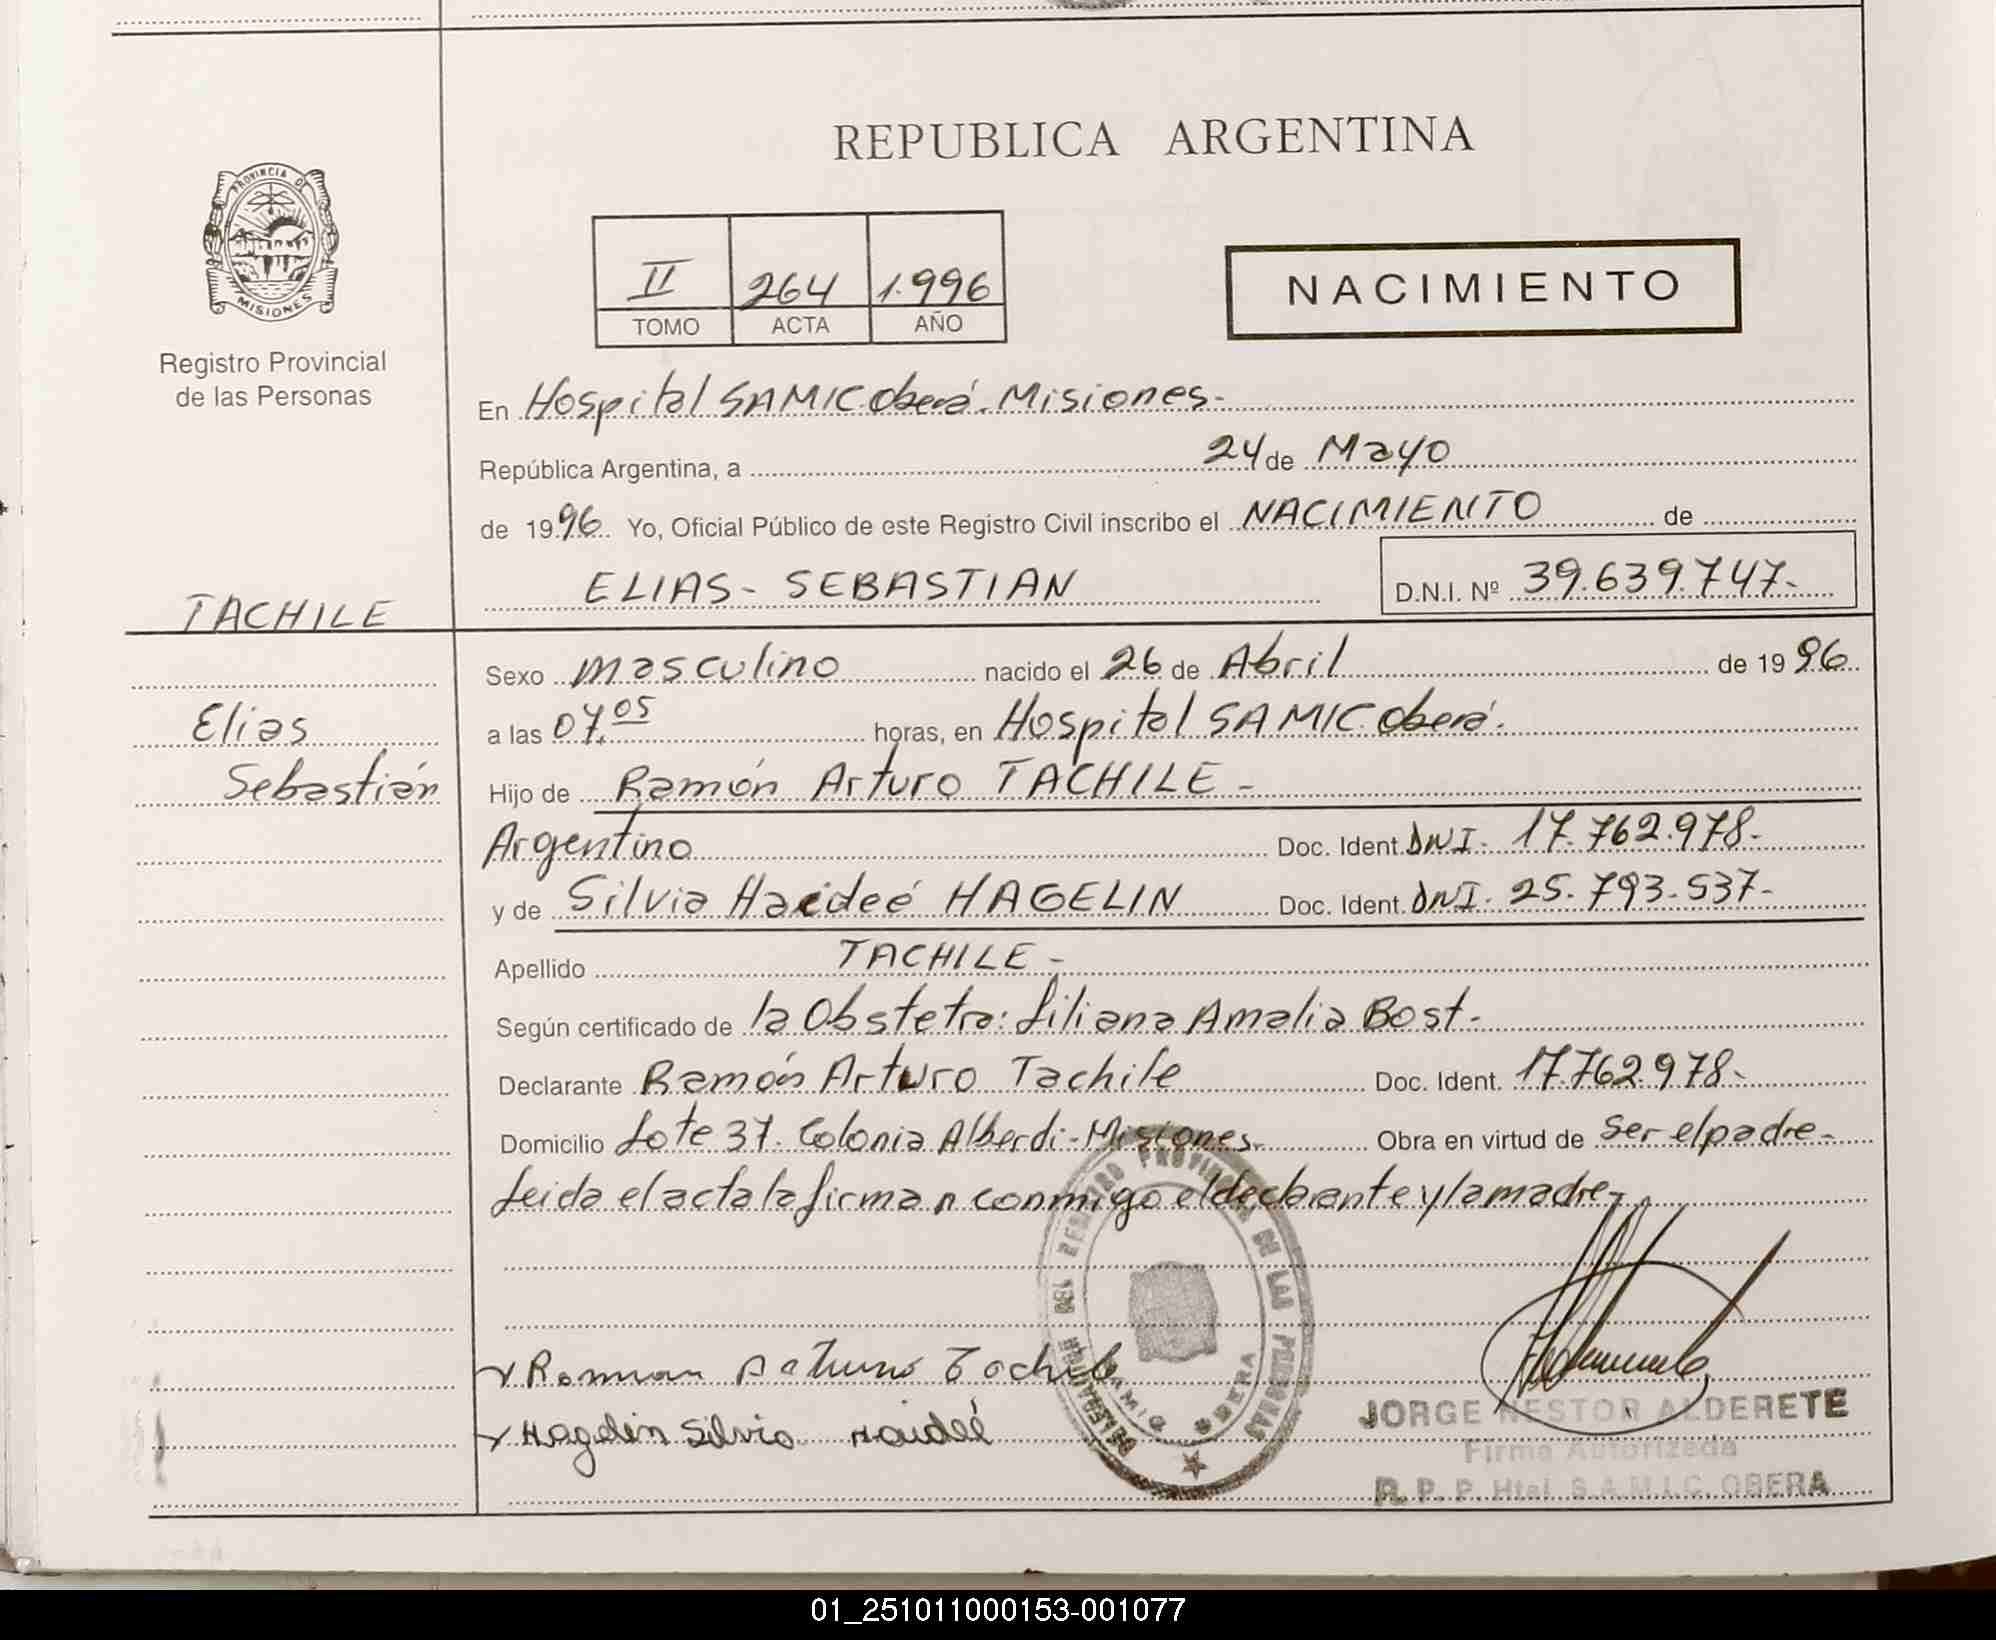 REPUBLICA ARGENTINA
PROVINCIA DE
MISIONES
Registro Provincial
de las Personas
II 264 1.996
TOMO ACTA AÑO
NACIMIENTO
En Hospital SAMIC Oberá. Misiones.
República Argentina, a 24 de Mayo
de 1996. Yo, Oficial Público de este Registro Civil inscribo el NACIMIENTO de
TACHILE ELIAS - SEBASTIAN D.N.I. Nº 39.639.747.
Sexo masculino nacido el 26 de Abril de 1996
Elias a las 07.05 horas, en Hospital SAMIC. Oberá.
Sebastián Hijo de Ramón Arturo TACHILE -
Argentino Doc. Ident. DNI. 17.762.978.
y de Silvia Haideé HAGELIN Doc. Ident. DNI. 25.793.537-
Apellido TACHILE -
Según certificado de la Obstetra: Liliana Amalia Bost.
Declarante Ramón Arturo Tachile Doc. Ident. 17.762.978-
Domicilio Lote 37. Colonia Alberdi - Misiones. Obra en virtud de ser el padre.
Leida el acta la firman conmigo el declarante y la madre.
Roman Arturo Tachile
Hagelin Silvia Haideé
REGISTRO PROVINCIAL DE LAS PERSONAS
OBERA
JORGE NESTOR ALDERETE
Firma Autorizada
R. P. P. Htal. S.A.M.I.C. OBERA
01_251011000153-001077